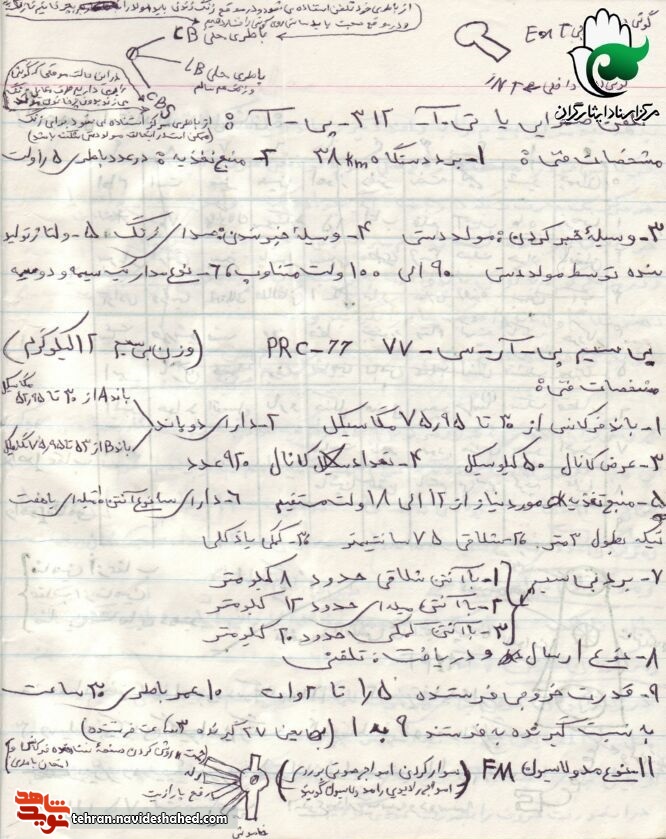 از باطری خود تلفن استفاده می شود و در موقع زنگ زدن باید مولد را
و در موقع صحبت باید شاسی روی گوشی را فشار دهیم
باطری محلی LB
EXT
INT
CB
باطری محلی LB
CBS
مرکز اسناد ایثارگران
تلفن صحرایی یا تی-آ- ۳۱۲-پی-آ- :
مشخصات فنی : ۱- برد دستگاه ۳۸ km ۲- منبع تغذیه : در عدد باطری ۱٫۵ ولت
۳- وسیله خبر کردن : مولد دستی ۴- وسیله خبر شدن : صدای زنگ ۵- ولتاژ تولید
شده توسط مولد دستی ۹۰ الی ۱۰۰ ولت متناوب ۶- نوع مدار یک سیمه و دو سیمه
بی سیم پی-آر-سی-۷۷ PRC-77 (وزن بی سیم ۱۲ کیلوگرم)
مشخصات فنی :
۱- باند فرکانس از ۳۰ تا ۷۵٫۹۵ مگا سیکل ۲- دارای دو باند
باند A از ۳۰ تا ۵۲٫۹۵ مگاسیکل
باند B از ۵۳ تا ۷۵٫۹۵ مگاسیکل
۳- عرض کانال ۵۰ کیلو سیکل ۴- تعداد کانال ۹۲۰ عدد
۵- منبع تغذیه مورد نیاز از ۱۲ الی ۱۸ ولت مستقیم ۶- دارای سه نوع آنتن : میله ای یا هفت
تیکه بطول ۳ متر شلاقی ۷۵ سانتیمتر کمکی یا دکلی
۷- برد بی سیم
۱- با آنتن شلاقی حدود ۸ کیلومتر
۲- با آنتن میله ای حدود ۱۲ کیلومتر
۳- با آنتن کمکی حدود ۲۰ کیلومتر
۸- نوع ارسال و دریافت : تلفنی
۹- قدرت خروجی فرستنده ۱٫۵ تا ۲ وات ۱۰- عمر باطری ۳۰ ساعت
به نسبت گیرنده به فرستنده ۹ به ۱ (یعنی ۲۷ گیرنده ۳ ساعت فرستنده)
۱۱- نوع مدولاسیون FM (سوار کردن امواج صوتی بر روی
امواج رادیویی را مدولاسیون گویند)
روشن کردن صفحه
رله
رفع پارازیت
خاموش
شاهد
نوید
tehran.navideshahed.com